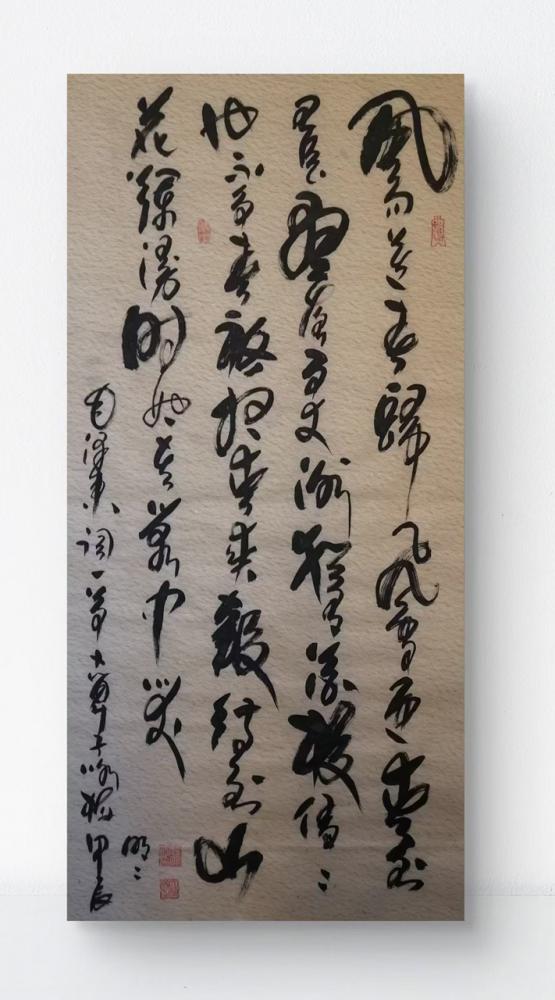 風雨送春歸飛雪迎春到
已是懸崖百丈冰猶有花枝俏々
也不爭春祇把春來報待到山
花爛漫時她在叢中笑
毛澤東詞一首卜算子咏梅甲辰